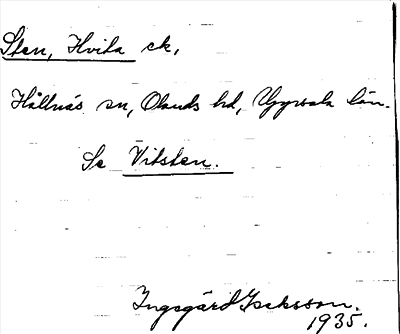 Sten, Hvita ek,
Hållnäs sn, Olands hd, Uppsala län.
Se Vitsten.
Ingegärd Isaksson.
1935.